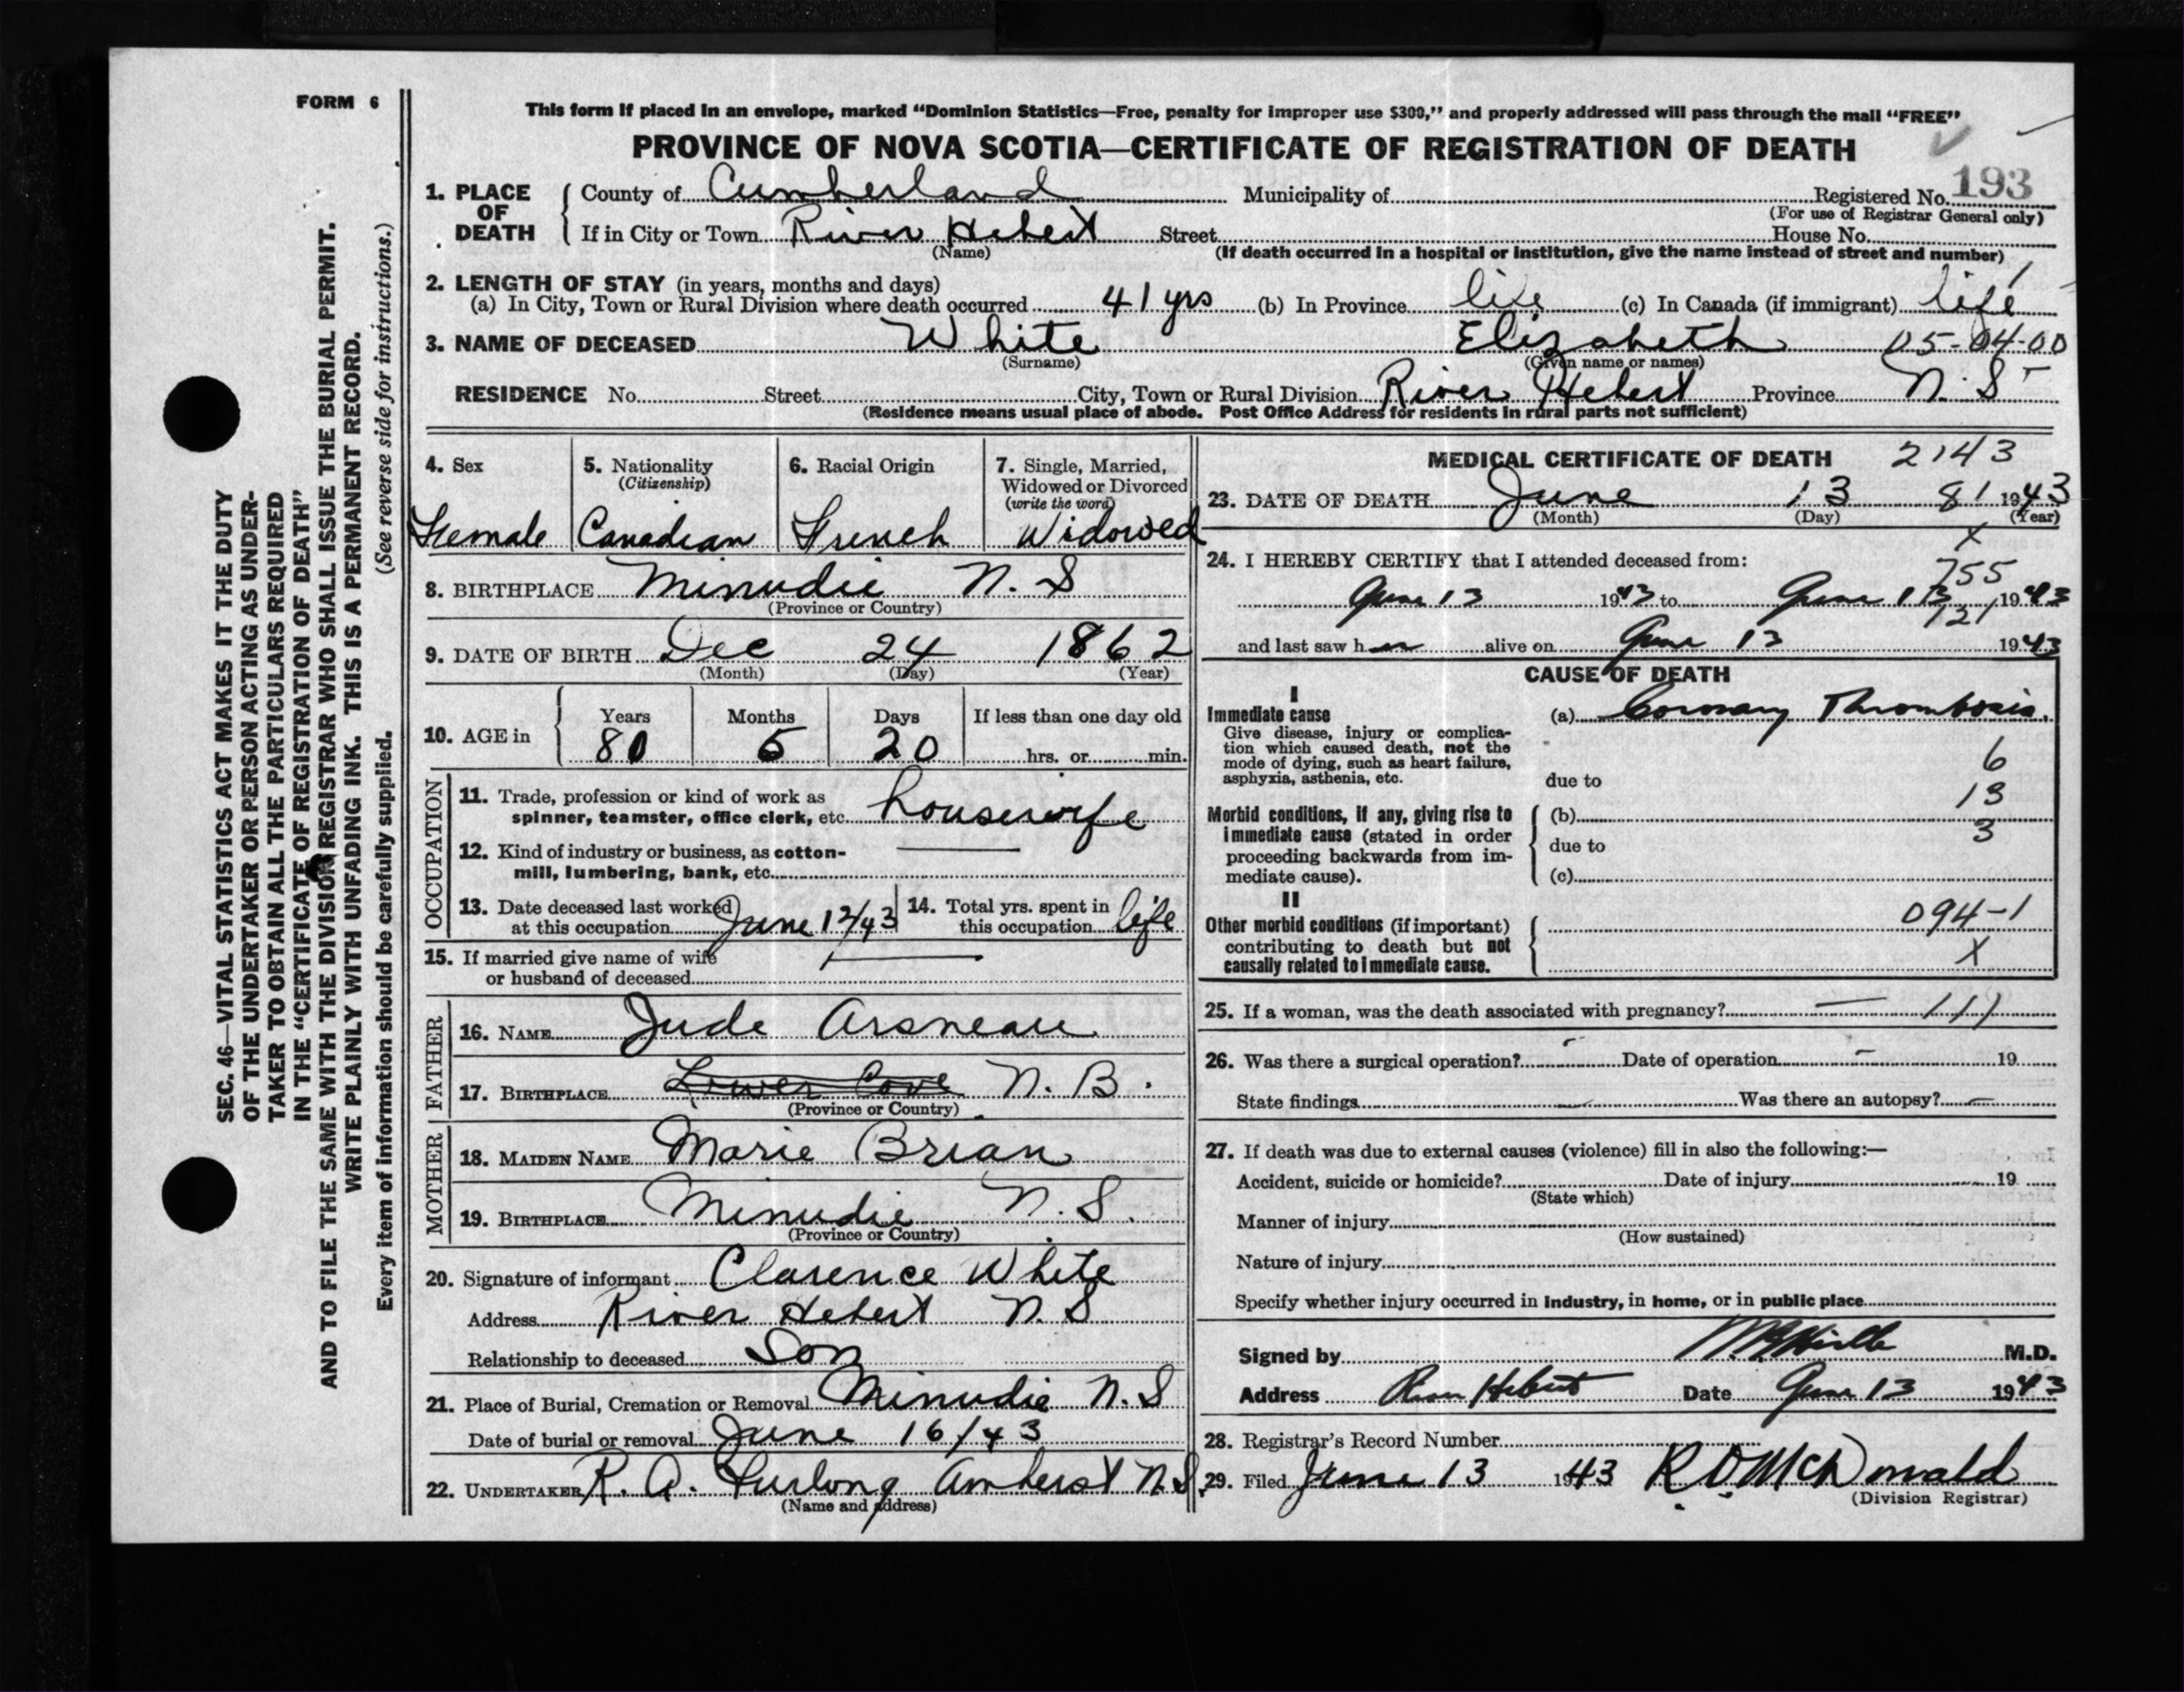 FORM 6
This form if placed in an envelope, marked “Dominion Statistics—Free, penalty for improper use $300,” and properly addressed will pass through the mail “FREE”
PROVINCE OF NOVA SCOTIA—CERTIFICATE OF REGISTRATION OF DEATH
1. PLACE OF DEATH
County of Cumberland Municipality of Registered No. 193
(For use of Registrar General only)
If in City or Town River Hebert Street House No.
(Name) (If death occurred in a hospital or institution, give the name instead of street and number)
2. LENGTH OF STAY (in years, months and days)
(a) In City, Town or Rural Division where death occurred 41 yrs (b) In Province life (c) In Canada (if immigrant) life
3. NAME OF DECEASED White Elizabeth 05-04-00
(Surname) (Given name or names)
RESIDENCE No. Street City, Town or Rural Division River Hebert Province N. S
(Residence means usual place of abode. Post Office Address for residents in rural parts not sufficient)
4. Sex
Female
5. Nationality
(Citizenship)
Canadian
6. Racial Origin
French
7. Single, Married,
Widowed or Divorced
(write the word)
Widowed
8. BIRTHPLACE Minudie N. S
(Province or Country)
9. DATE OF BIRTH Dec 24 1862
(Month) (Day) (Year)
10. AGE in
Years Months Days If less than one day old
80 5 20 hrs. or min.
OCCUPATION
11. Trade, profession or kind of work as
spinner, teamster, office clerk, etc. housewife
12. Kind of industry or business, as cotton-
mill, lumbering, bank, etc.
13. Date deceased last worked
at this occupation June 12/43
14. Total yrs. spent in
this occupation life
15. If married give name of wife
or husband of deceased
FATHER
16. NAME Jude Arsneau
17. BIRTHPLACE Lower Cove N. B.
(Province or Country)
MOTHER
18. MAIDEN NAME Marie Brian
19. BIRTHPLACE Minudie N. S.
(Province or Country)
20. Signature of informant Clarence White
Address River Hebert N. S
Relationship to deceased Son
21. Place of Burial, Cremation or Removal Minudie N. S
Date of burial or removal June 16/43
22. UNDERTAKER R. A. Furlong Amherst N. S.
(Name and address)
MEDICAL CERTIFICATE OF DEATH 2143
23. DATE OF DEATH June 13 81 1943
(Month) (Day) (Year)
X
24. I HEREBY CERTIFY that I attended deceased from:
755
June 13 1943 to June 13 1943
121
and last saw her alive on June 13 1943
CAUSE OF DEATH
I
Immediate cause
Give disease, injury or complica-
tion which caused death, not the
mode of dying, such as heart failure,
asphyxia, asthenia, etc.
(a) Coronary Thrombosis.
6
due to
13
Morbid conditions, if any, giving rise to
immediate cause (stated in order
proceeding backwards from im-
mediate cause).
(b)
3
due to
(c)
II
Other morbid conditions (if important)
contributing to death but not
causally related to immediate cause.
094-1
X
25. If a woman, was the death associated with pregnancy? — 111
26. Was there a surgical operation? - Date of operation - 19
State findings — Was there an autopsy? —
27. If death was due to external causes (violence) fill in also the following:—
Accident, suicide or homicide? Date of injury 19
(State which)
Manner of injury
(How sustained)
Nature of injury
Specify whether injury occurred in industry, in home, or in public place
Signed by M.D.
Address River Hebert Date June 13 1943
28. Registrar's Record Number
29. Filed June 13 1943 R D McDonald
(Division Registrar)
SEC. 46—VITAL STATISTICS ACT MAKES IT THE DUTY
OF THE UNDERTAKER OR PERSON ACTING AS UNDER-
TAKER TO OBTAIN ALL THE PARTICULARS REQUIRED
IN THE “CERTIFICATE OF REGISTRATION OF DEATH”
AND TO FILE THE SAME WITH THE DIVISION REGISTRAR WHO SHALL ISSUE THE BURIAL PERMIT.
WRITE PLAINLY WITH UNFADING INK. THIS IS A PERMANENT RECORD.
Every item of information should be carefully supplied. (See reverse side for instructions.)